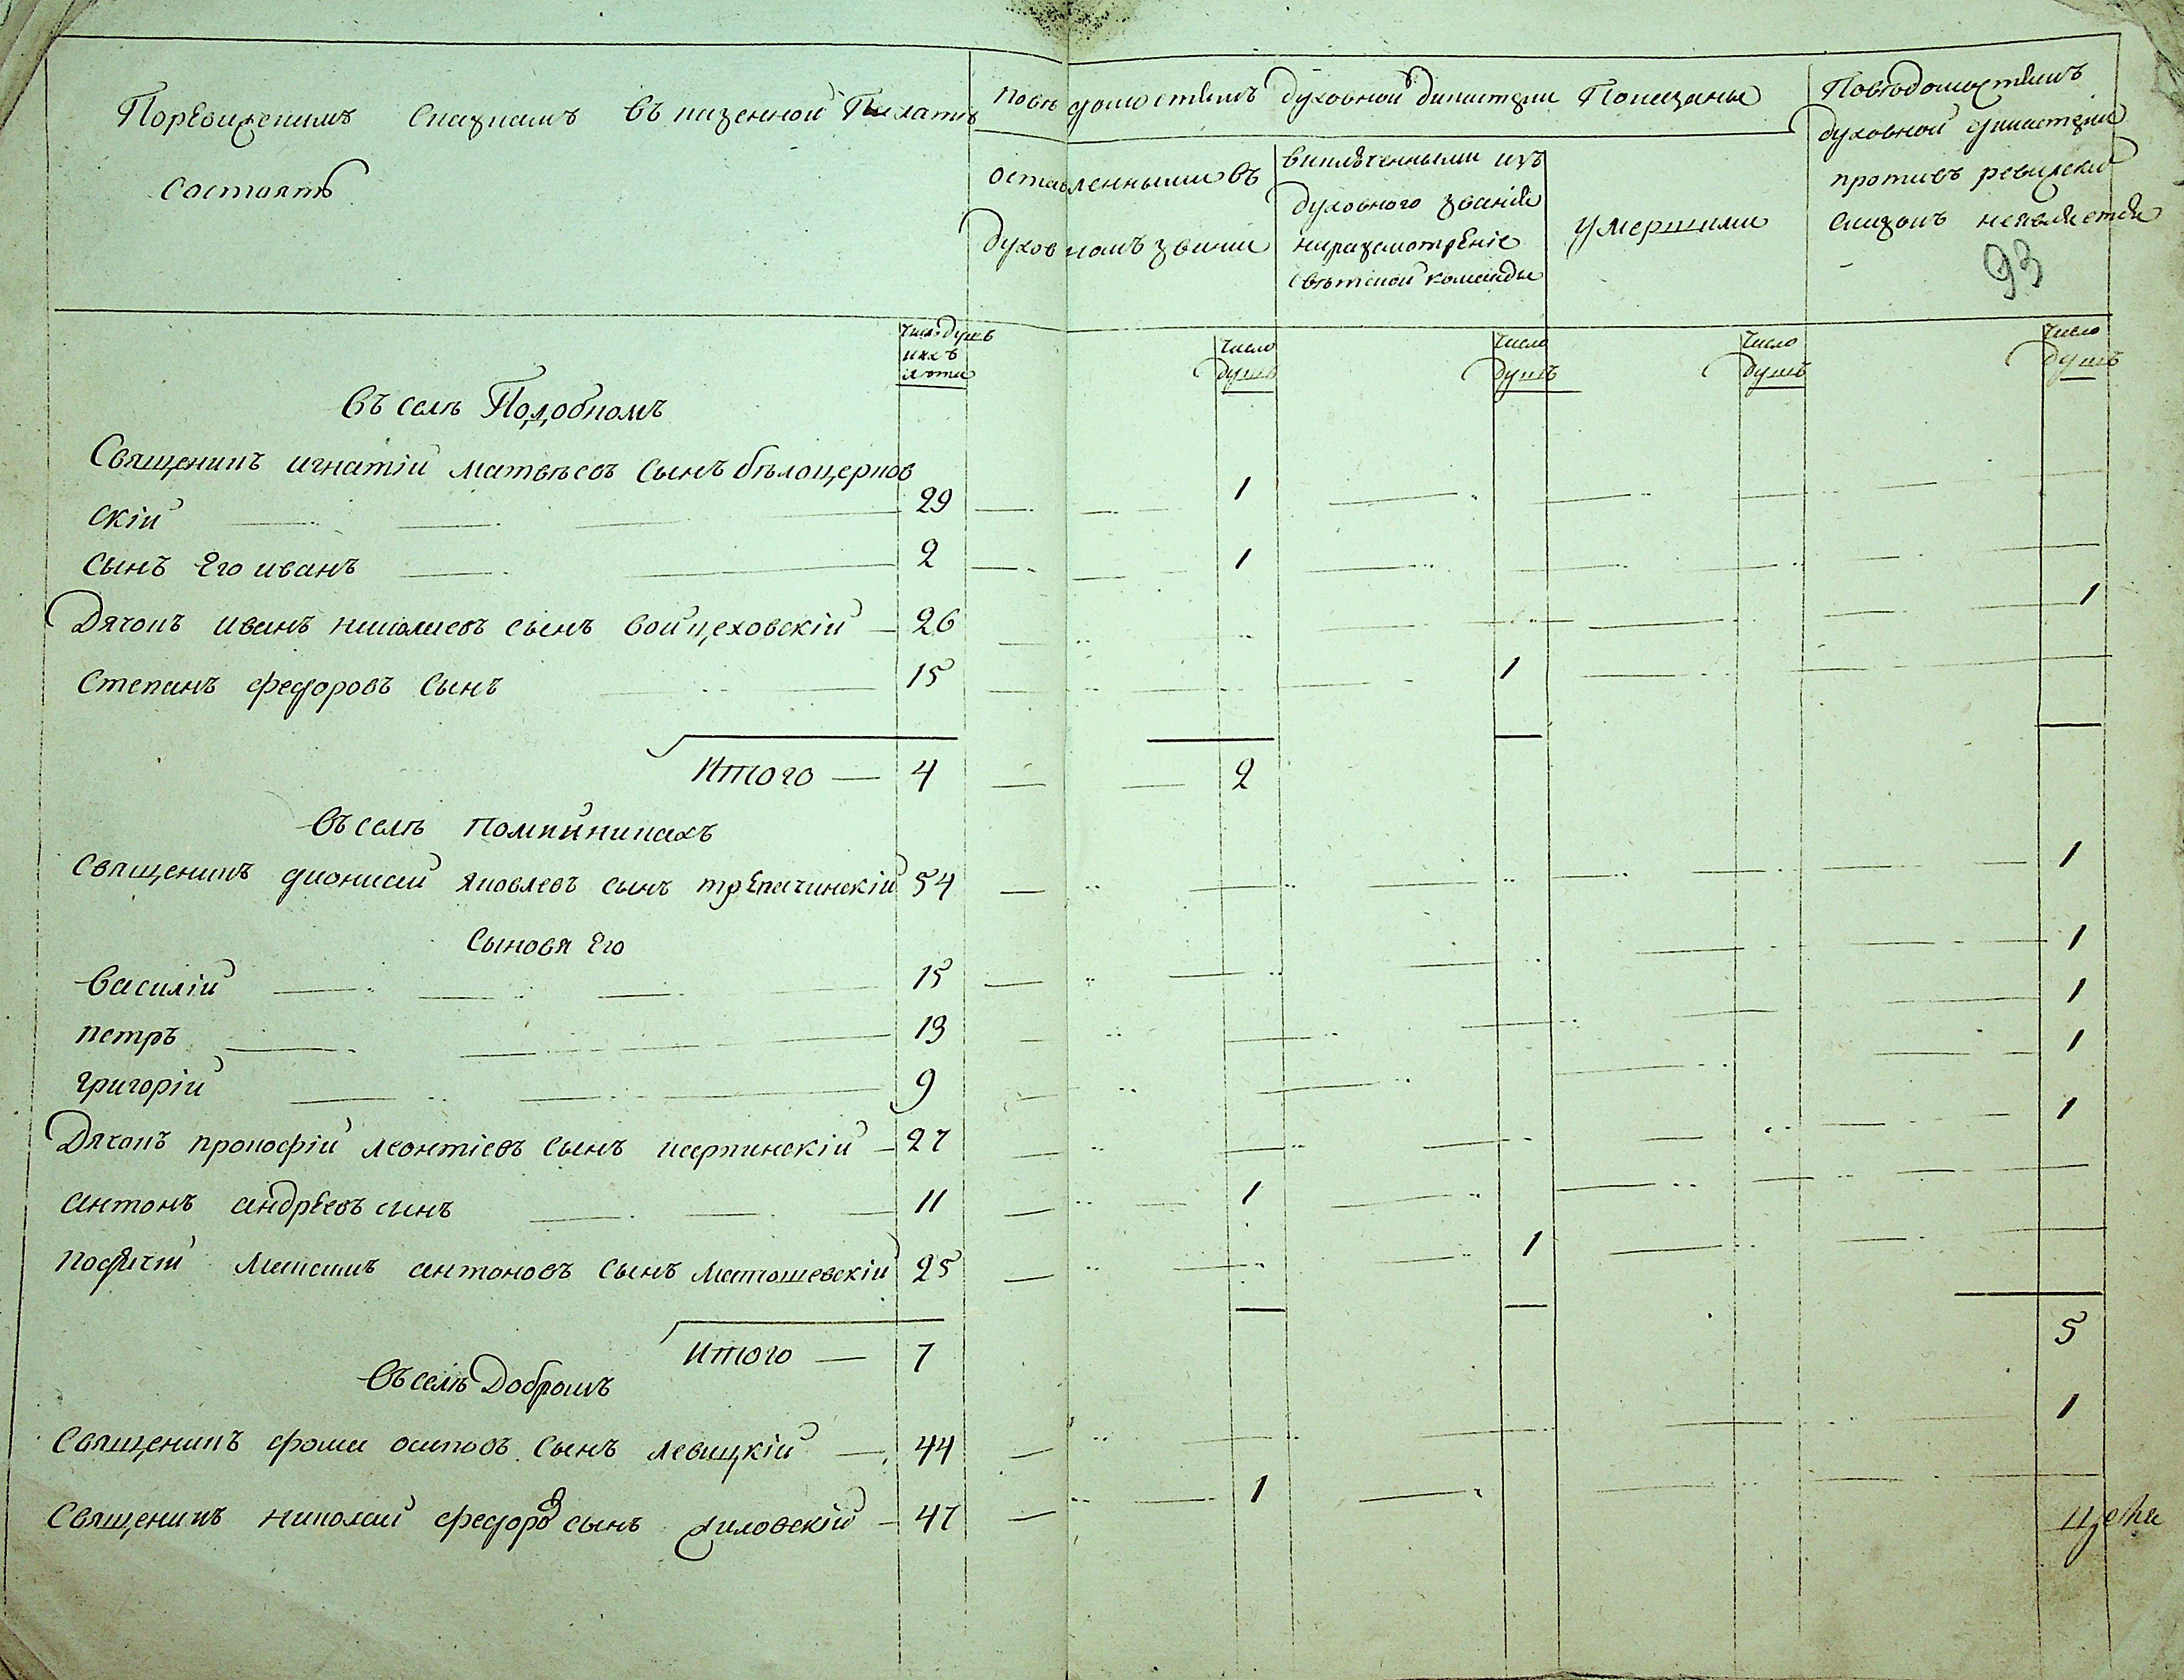 По ревизскимъ сказкамъ въ казенной Палатѣ
состоятъ
По вѣдомостямъ духовной дикастерии Показаны
оставленными въ
духовномъ звании
виключенными изъ
духовного званія
на разсмотреніе
свѣтской команды
умершими
По вѣдомостямъ
духовной дикастерии
противъ ревизскихъ
сказокъ неявляется
93
число душъ
ихъ
лѣта
число
душъ
число
душъ
число
душъ
число
душъ
Въ селѣ Подобномъ
Священикъ игнатій матвѣевъ сынъ бѣлоцерков
скій 29 1
сынъ Его иванъ 2 1
Дячокъ иванъ николаевъ сынъ войцеховскій 26 1
Степанъ федоровъ сынъ 15 1
Итого 4 2
Въ селѣ помийникахъ
Священикъ дионисий яковлевъ сынъ трепачинскій 54 1
Сыновя Его
Василій 15 1
петръ 13 1
григорій 9 1
Дячокъ прокофій леонтіевъ сынъ 27 1
антонъ андреевъ сынъ 11 1
максимъ антоновъ сынъ матошевскій 25 1
Итого 7 5
Въ селѣ Добромъ
Священикъ фома осиповъ сынъ левицкій 44 1
Священикъ николай федоровъ сынъ хиловскій 47 1